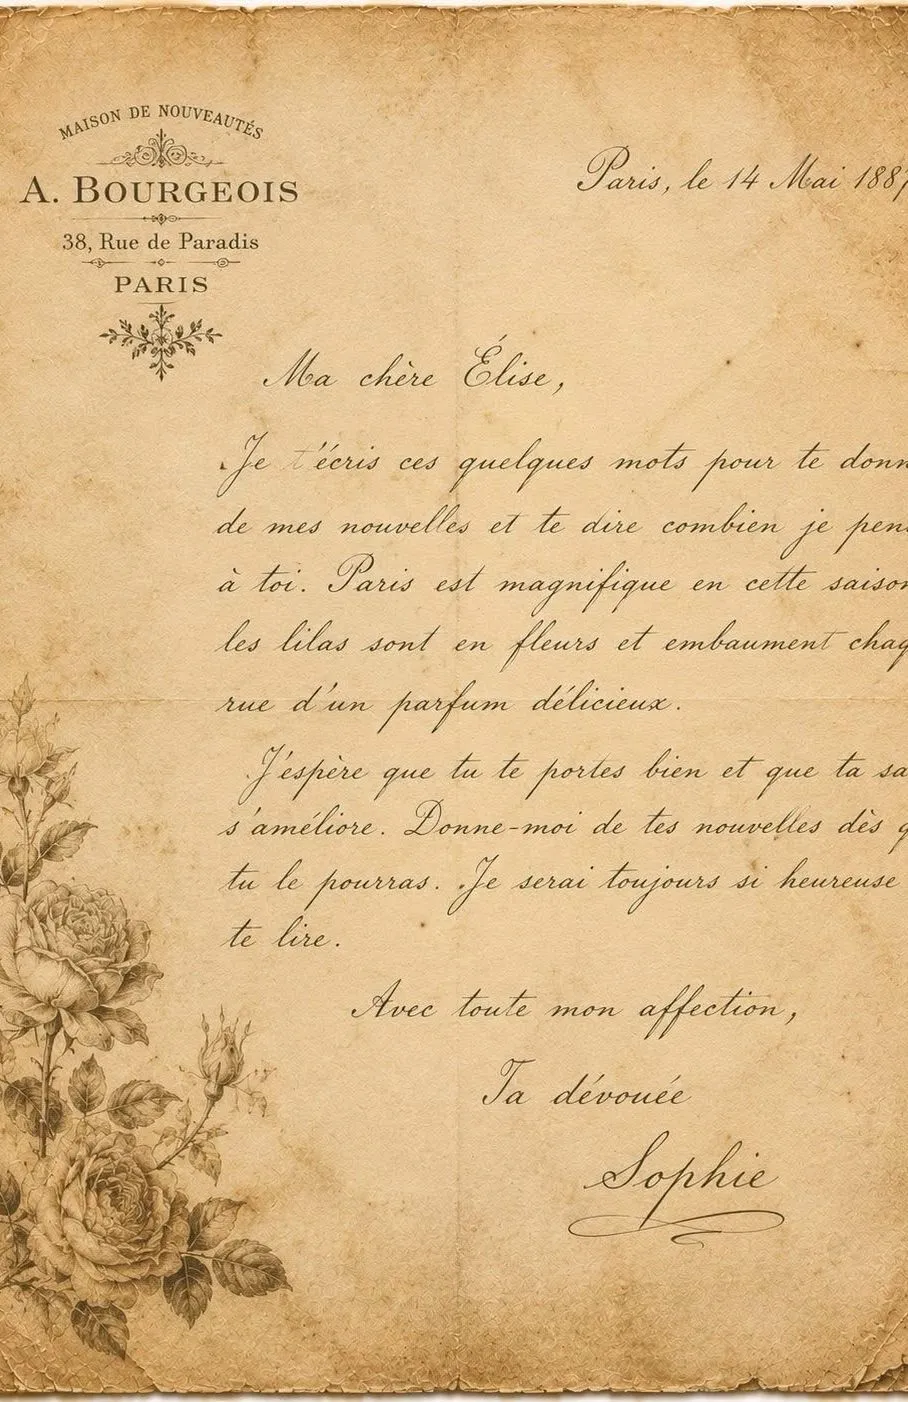 MAISON DE NOUVEAUTÉS
A. BOURGEOIS
38, Rue de Paradis
PARIS
Paris, le 14 Mai
Ma chère Élise,
Je t'écris ces quelques mots pour te
de mes nouvelles et te dire combien je
à toi. Paris est magnifique en cette
les lilas sont en fleurs et embaument
rue d'un parfum délicieux.
J'espère que tu te portes bien et que ta
s'améliore. Donne-moi de tes nouvelles dès
tu le pourras. Je serai toujours si heureuse
te lire.
Avec toute mon affection,
Ta dévouée
Sophie